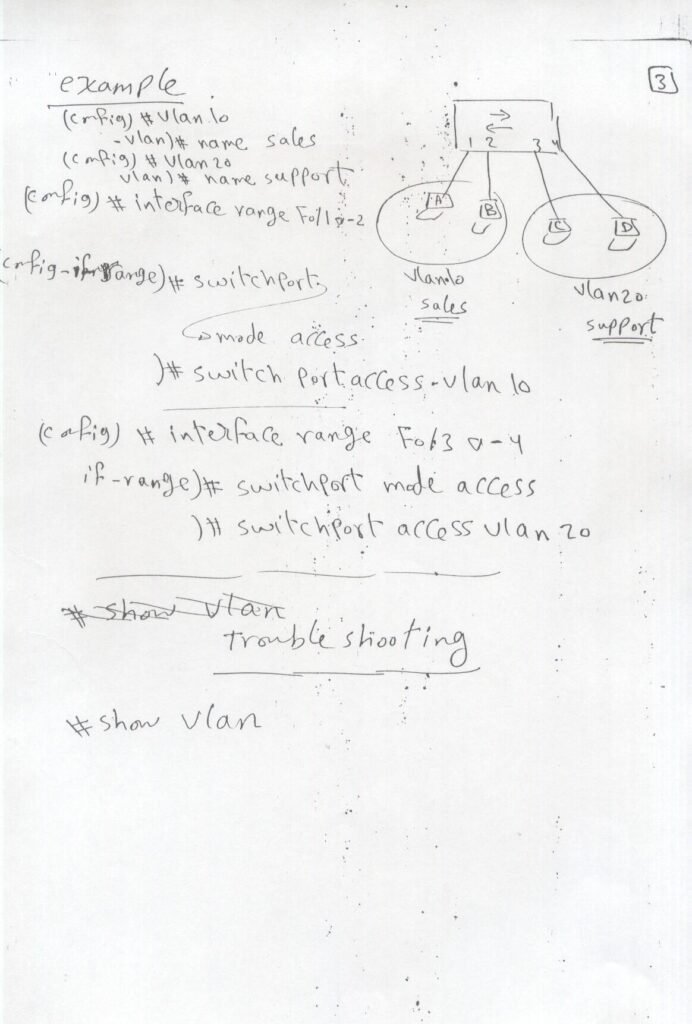 3
example
(config) # Vlan 10
-vlan)# name sales
(config) # Vlan 20
vlan)# name support
(config) # interface range F0/1 -2
(config-if-range)# switchport
mode access
)# switch port access vlan 10
(config) # interface range F0/3 -4
if-range)# switchport mode access
)# switchport access vlan 20
# show vlan
Trouble shooting
# show vlan
1 2 3 4
A B C D
Vlan10
sales
Vlan20
support